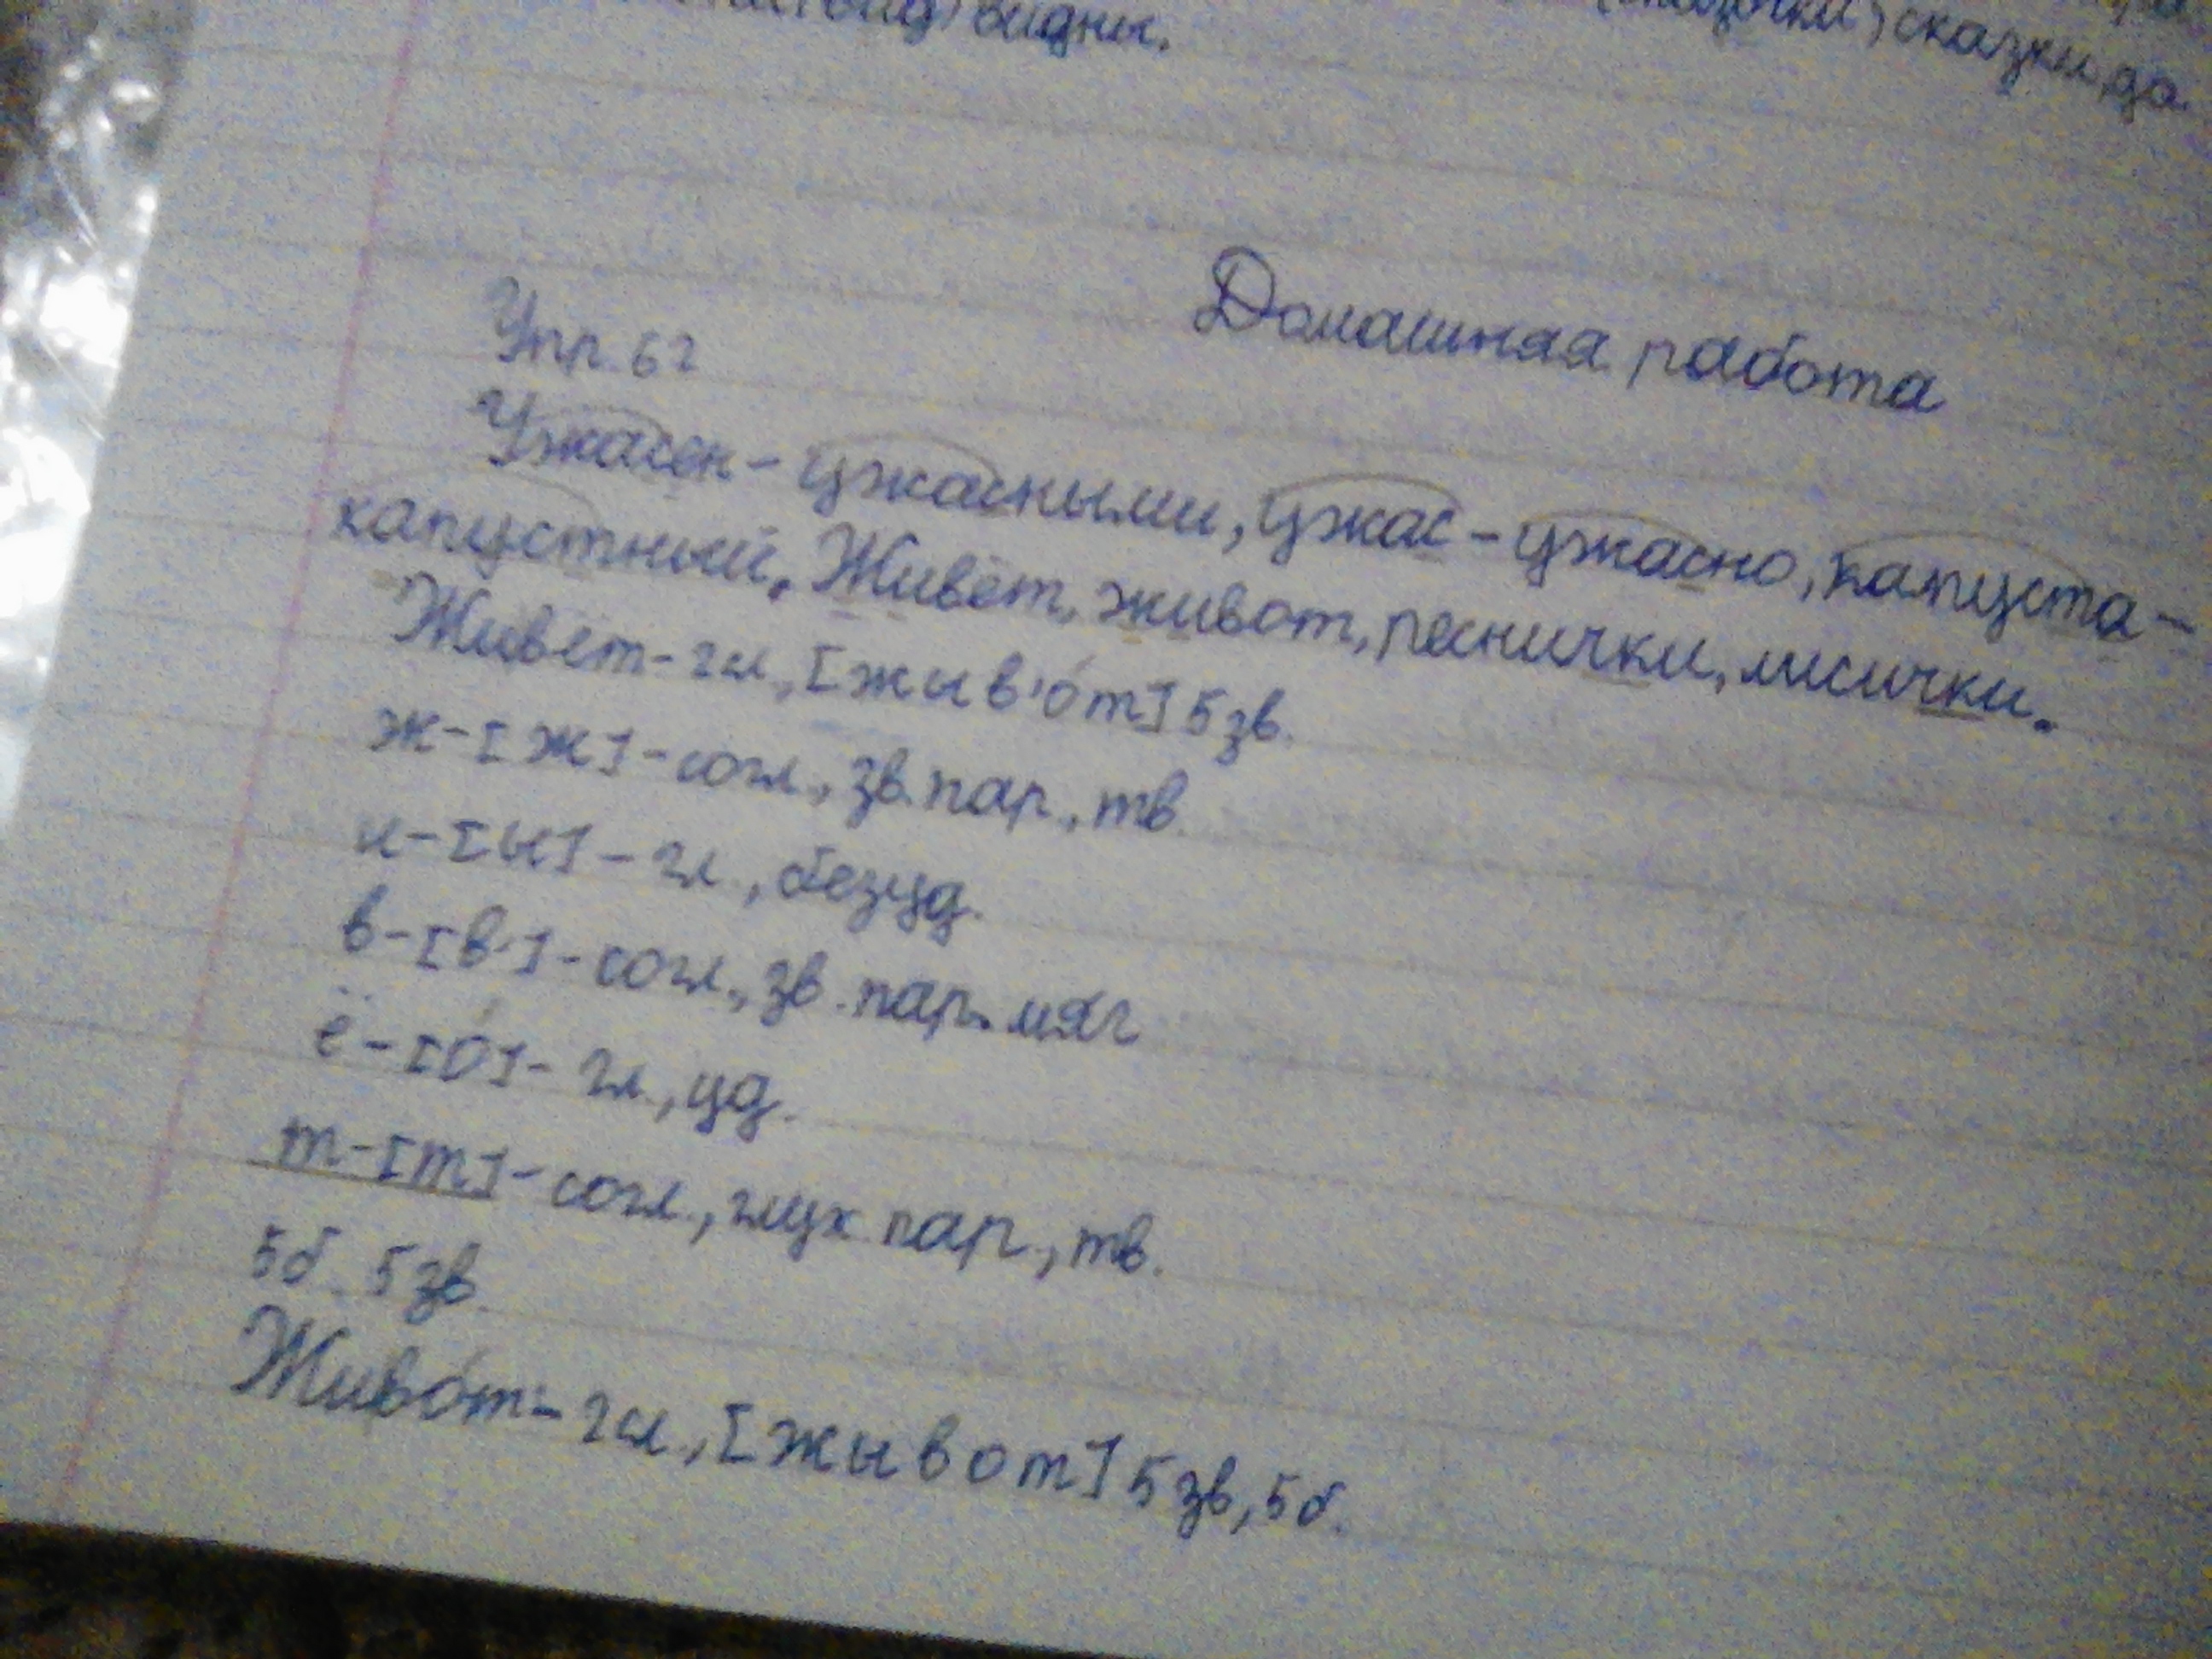 видны. сказки, да
Домашняя работа
Упр. 62
Ужасен - ужасными, ужас - ужасно, капуста -
капустный. Живёт, живот, реснички, лисички.
Живет - гл., [жыв'о́т] 5 зв.
ж - [ж] - согл., зв. пар., тв.
и - [ы] - гл., безуд.
в - [в'] - согл., зв. пар. мяг
ё - [о́] - гл., уд.
т - [т] - согл., глух. пар., тв.
5б. 5 зв.
Живо́т - гл., [жывот] 5 зв, 5 б.